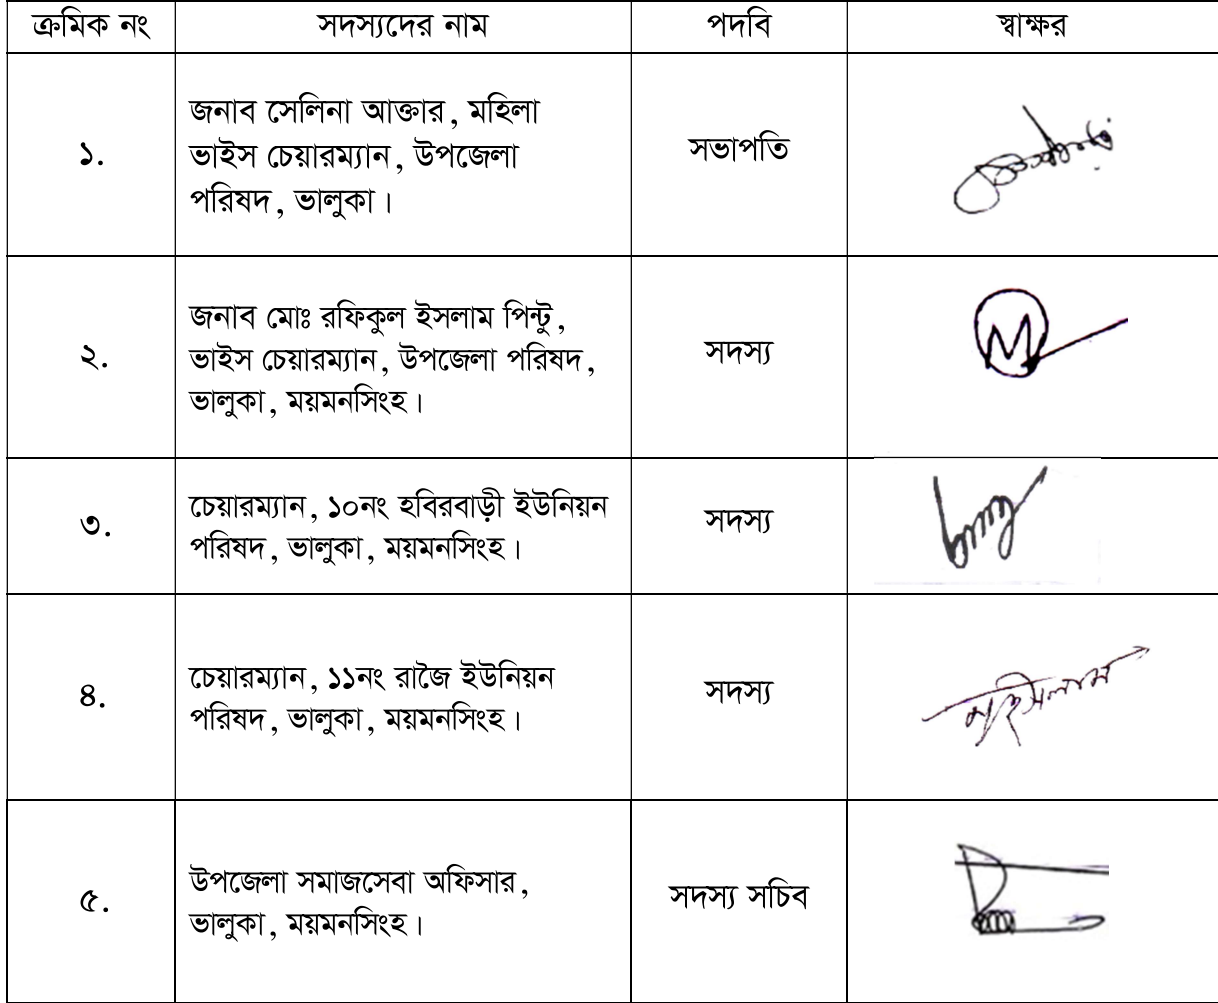 ক্রমিক নং সদস্যদের নাম পদবি স্বাক্ষর
১. জনাব সেলিনা আক্তার, মহিলা
ভাইস চেয়ারম্যান, উপজেলা
পরিষদ, ভালুকা। সভাপতি
২. জনাব মোঃ রফিকুল ইসলাম পিন্টু,
ভাইস চেয়ারম্যান, উপজেলা পরিষদ,
ভালুকা, ময়মনসিংহ। সদস্য
৩. চেয়ারম্যান, ১০নং হবিরবাড়ী ইউনিয়ন
পরিষদ, ভালুকা, ময়মনসিংহ। সদস্য
৪. চেয়ারম্যান, ১১নং রাজৈ ইউনিয়ন
পরিষদ, ভালুকা, ময়মনসিংহ। সদস্য
৫. উপজেলা সমাজসেবা অফিসার,
ভালুকা, ময়মনসিংহ। সদস্য সচিব